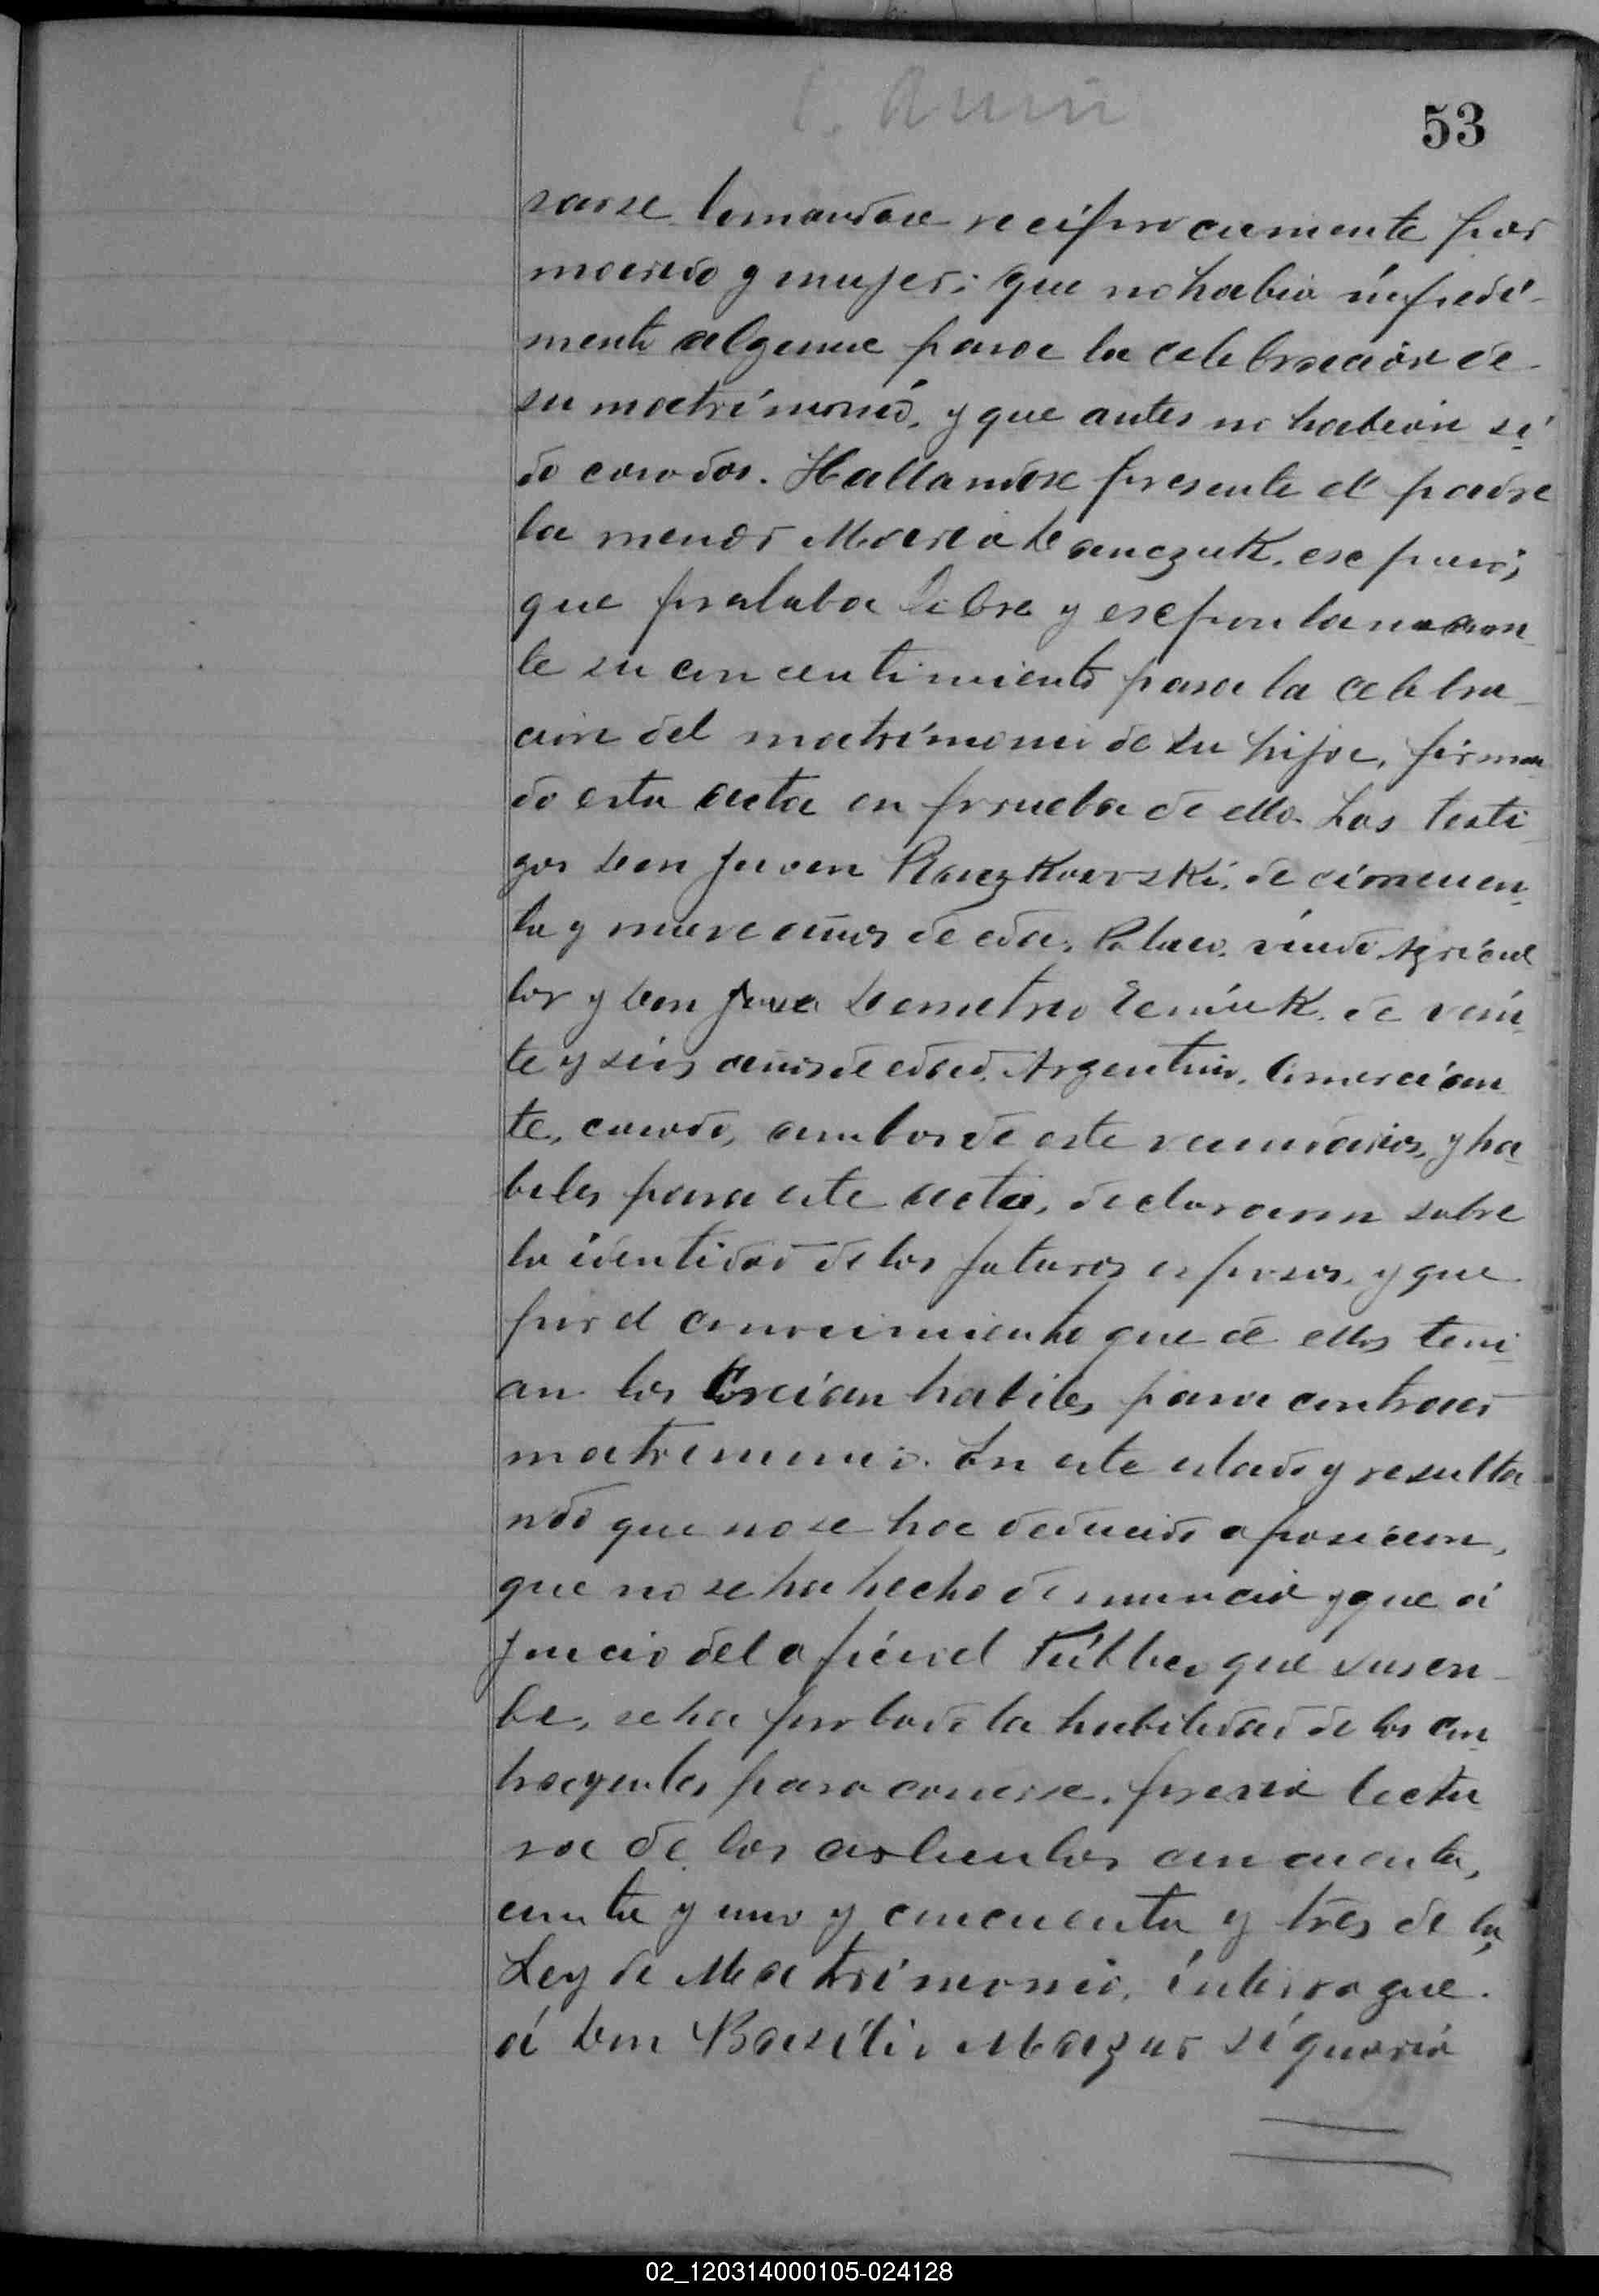 53
sarse tomandose reciprocamente por
marido y mujer; que no habia inpedi-
mento alguno para la celebracion de
su matrimonio, y que antes no habian si
do casados. Hallandose presente el padre
la menor Maria expuso;
que prestaba libre y espontaneamen
te su concentimiento para la celebra-
cion del matrimonio de su hija, firman
do esta acta en prueba de ello. Los testi
gos Don Juan de cincuen
ta y nueve años de eda, Polaco, viudo Agricul
tor y Don Demetrio de vein
te y seis años de edad, Argentino, Comercian
te, casado, ambos de este vecindarios, y ha
biles para este acto, declararon sobre
la identidad de los futuros esposos, y que
por el conocimiento que de ellos teni
an los Creian habiles para contraer
matrimonio. En este estado y resulta
ndo que no se ha deducido oposicion,
que no se ha hecho denuncia y que á
juicio del oficial Público que suscri-
be, se ha probado la habilidad de los con
trayentes para casarse, previa lectu
ra de los articulos cincuenta,
cuenta y uno y cincuenta y tres de la
Ley de Matrimonio, interrogue
á Don Basilio Mazur si queria
02_120314000105-024128